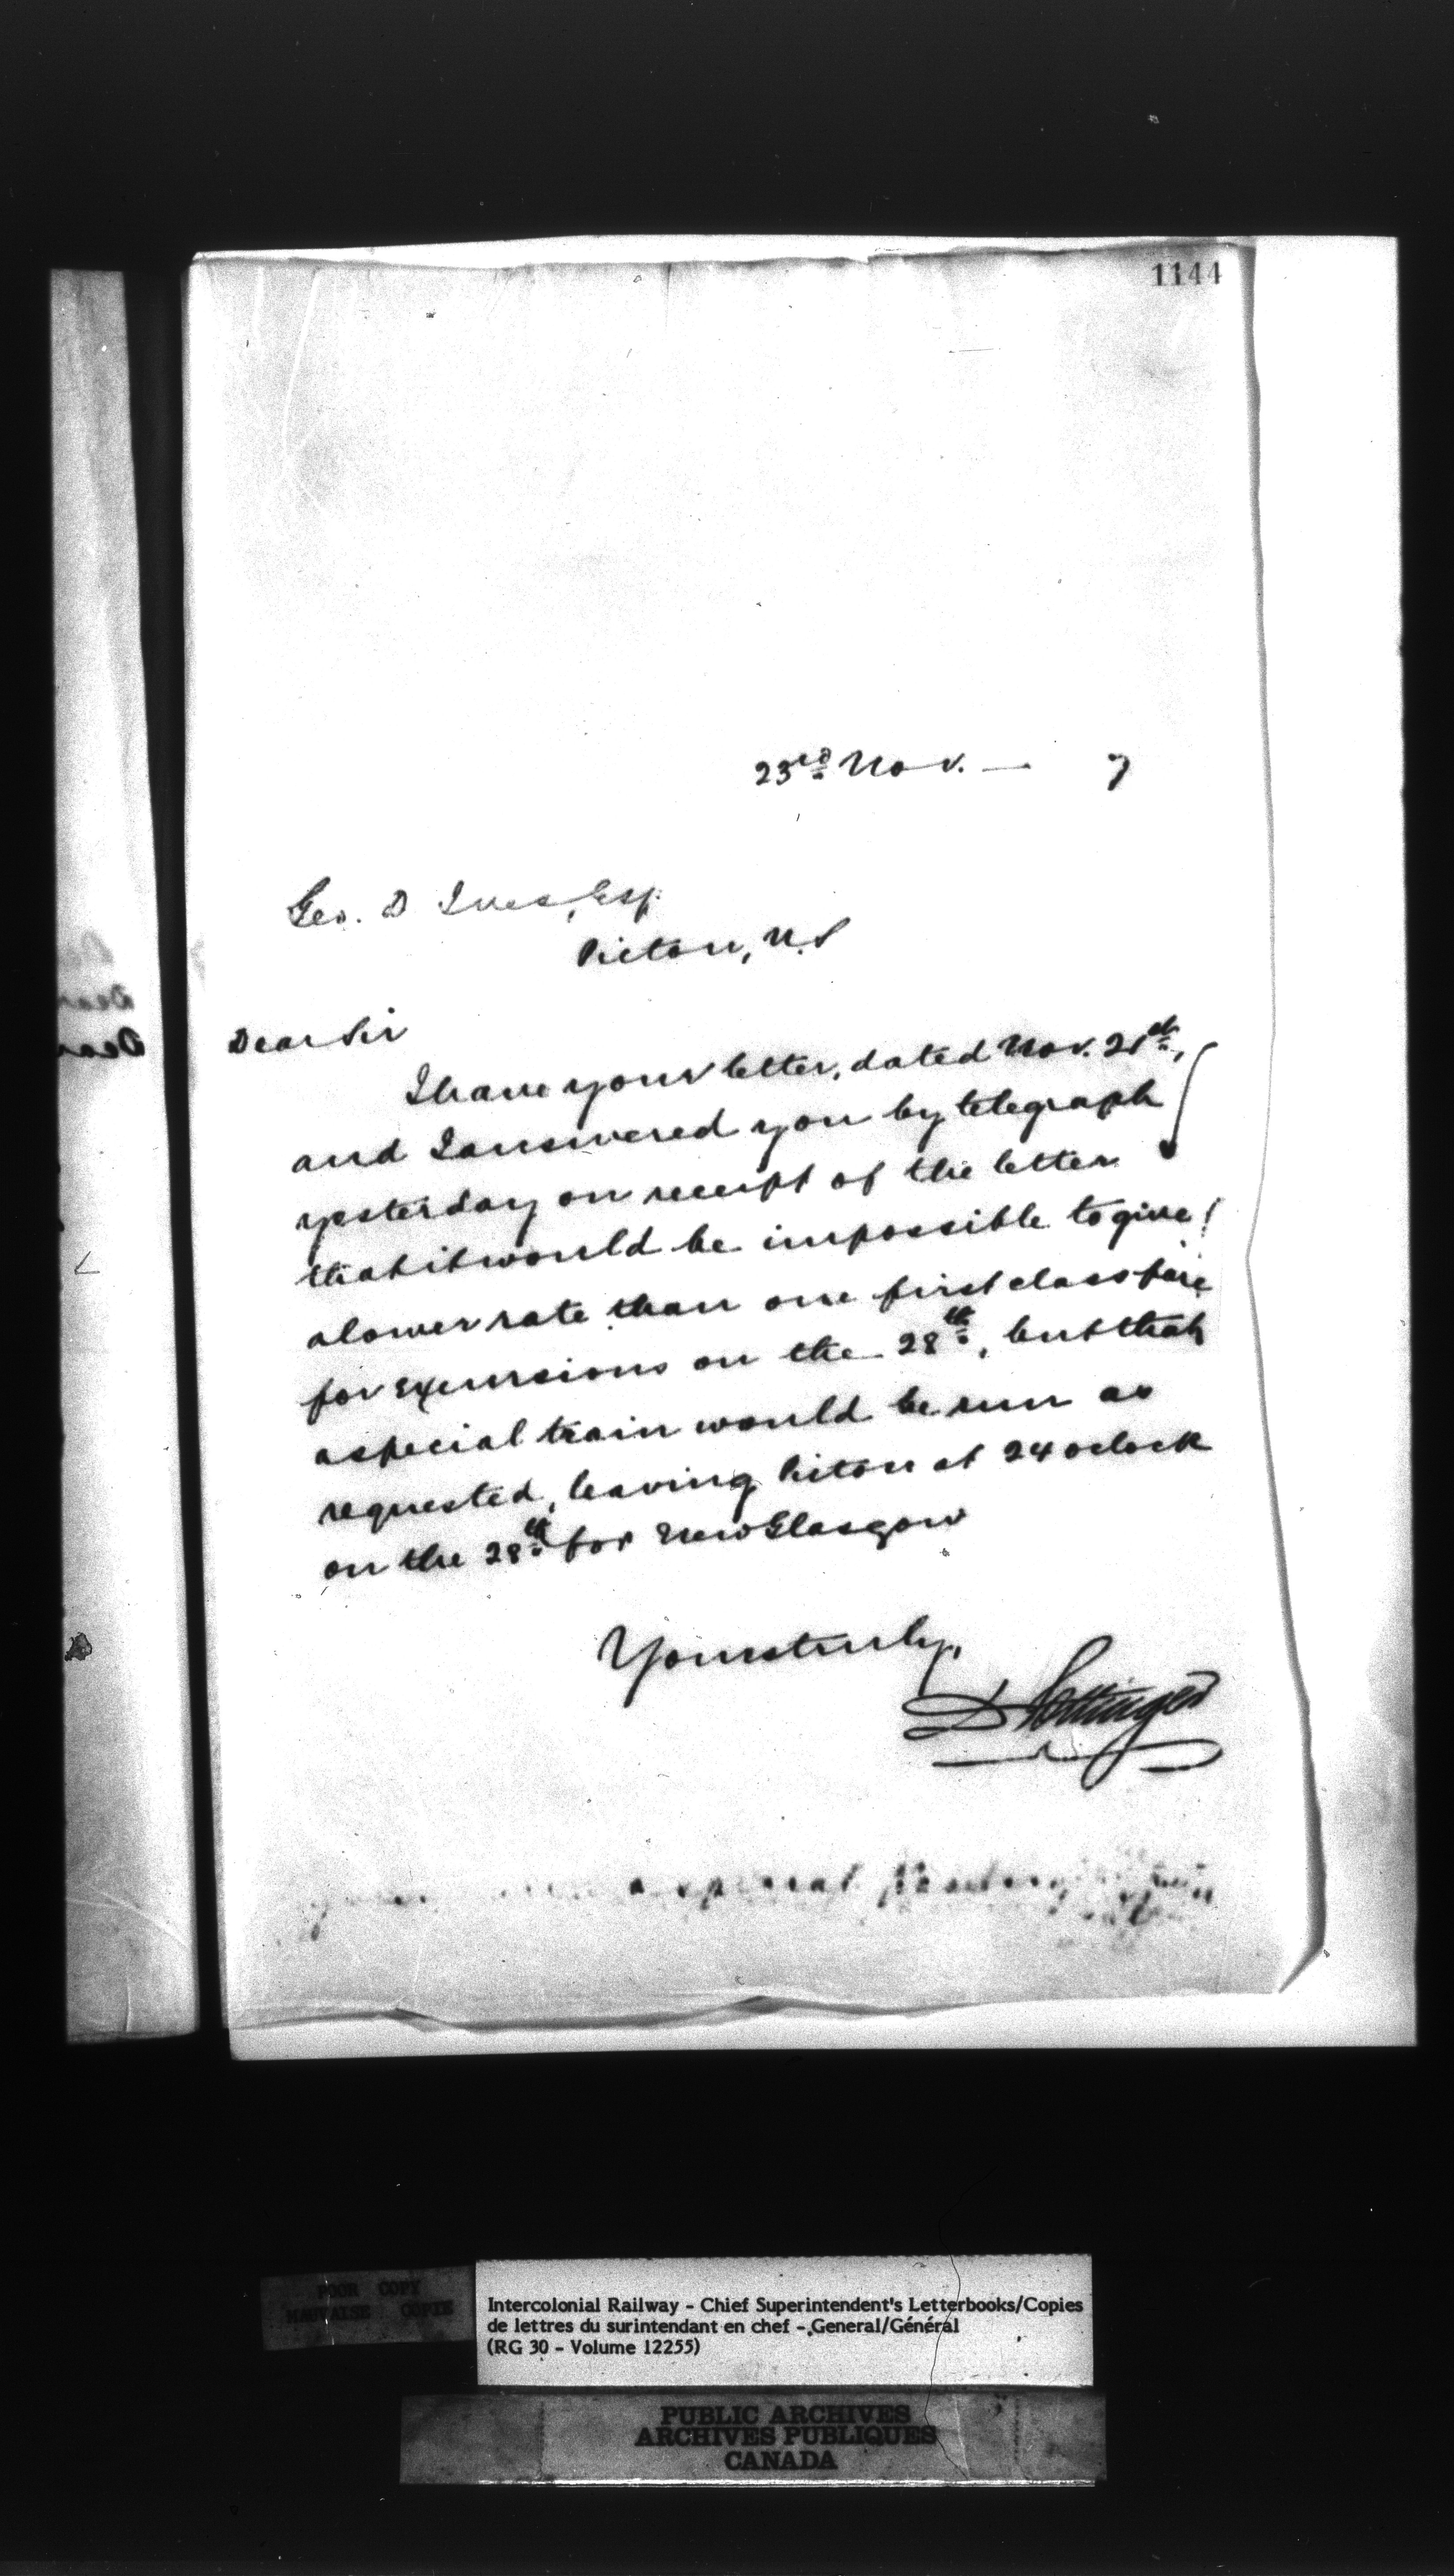 1144
23rd Nov. — 7
Geo. D Ives, Esq.
Pictou, N.S
Dear Sir
I have your letter, dated Nov. 21st,
and I answered you by telegraph
yesterday on receipt of the letter
that it would be impossible to give
a lower rate than one first class fare
for excursions on the 28th, but that
a special train would be run as
requested, leaving Pictou at 24 oclock
on the 28th for New Glasgow
Yours truly,
D Pottinger
a special
POOR COPY
MAUVAISE COPIE
Intercolonial Railway - Chief Superintendent's Letterbooks/Copies
de lettres du surintendant en chef - General/Général
(RG 30 - Volume 12255)
PUBLIC ARCHIVES
ARCHIVES PUBLIQUES
CANADA